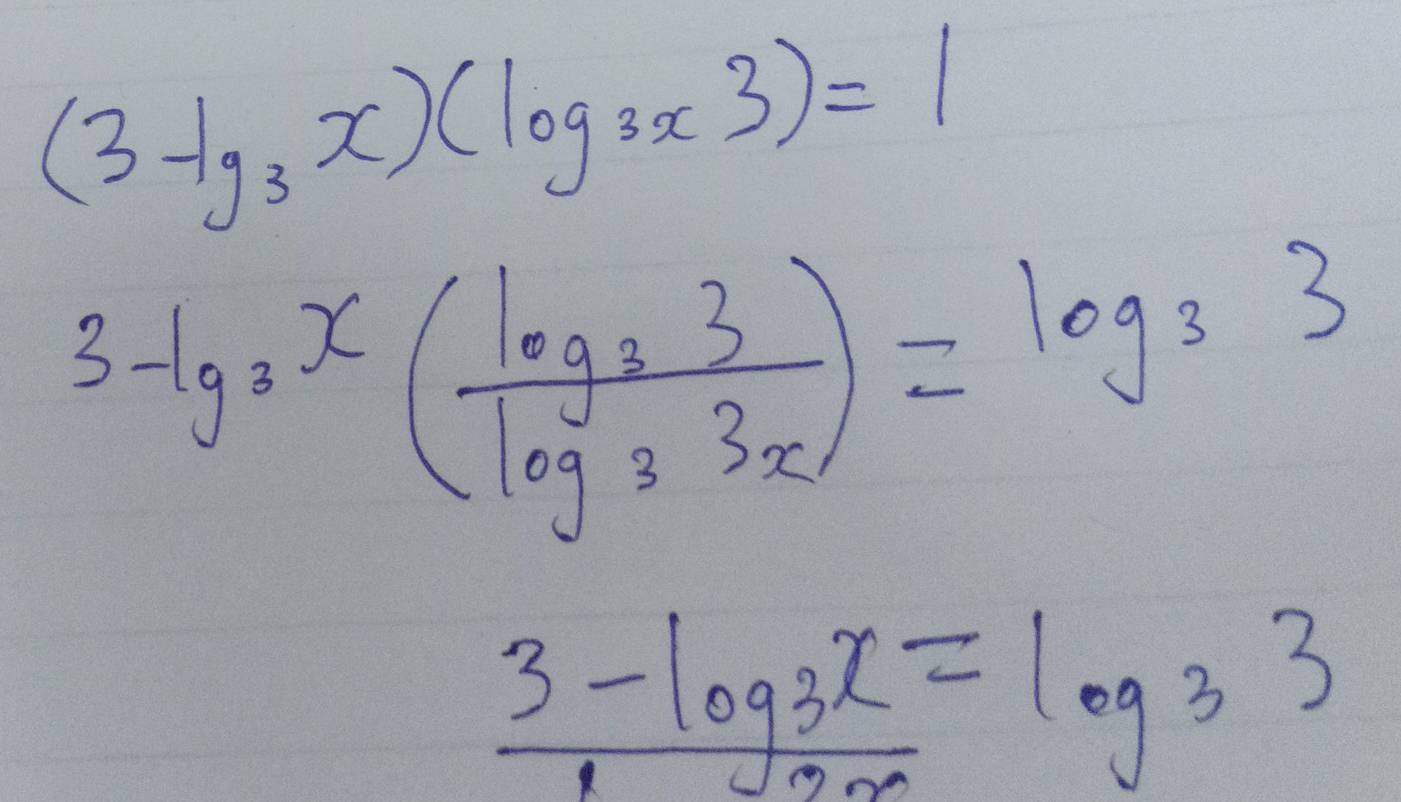 (3 - lg₃ x)(log₃ₓ 3) = 1
3 - lg₃ x (log₃ 3 / log₃ 3x) = log₃ 3
3 - log₃ x / 3x = log₃ 3